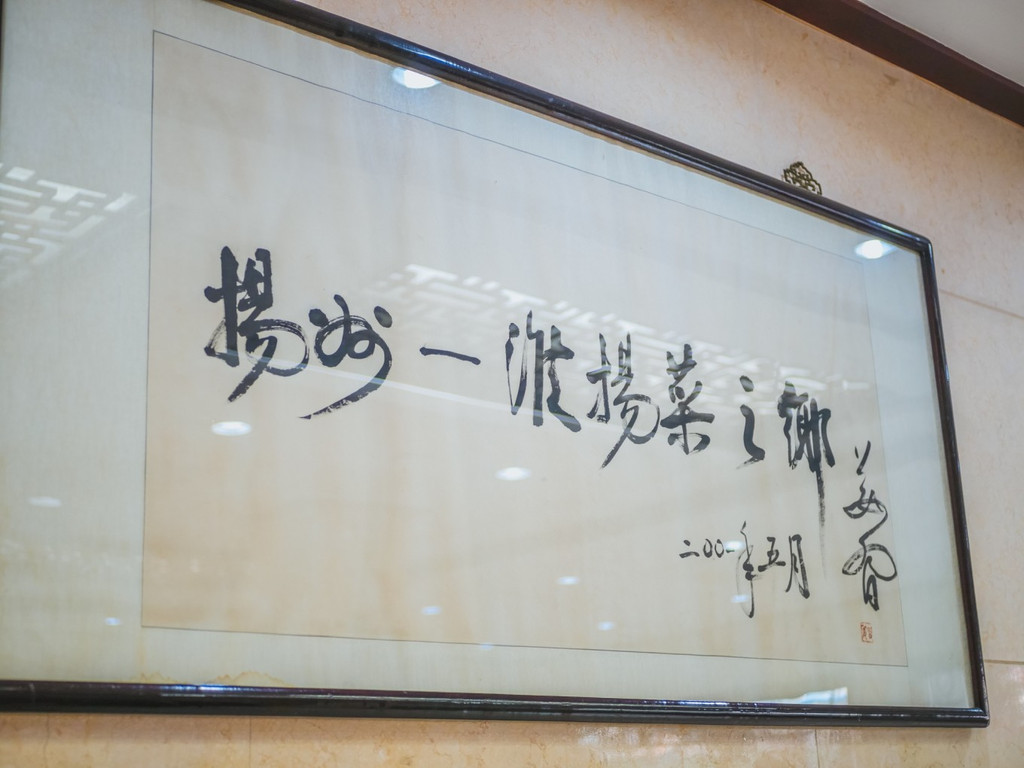 揚州一淮揚菜之鄉
二〇〇一年五月
姜習